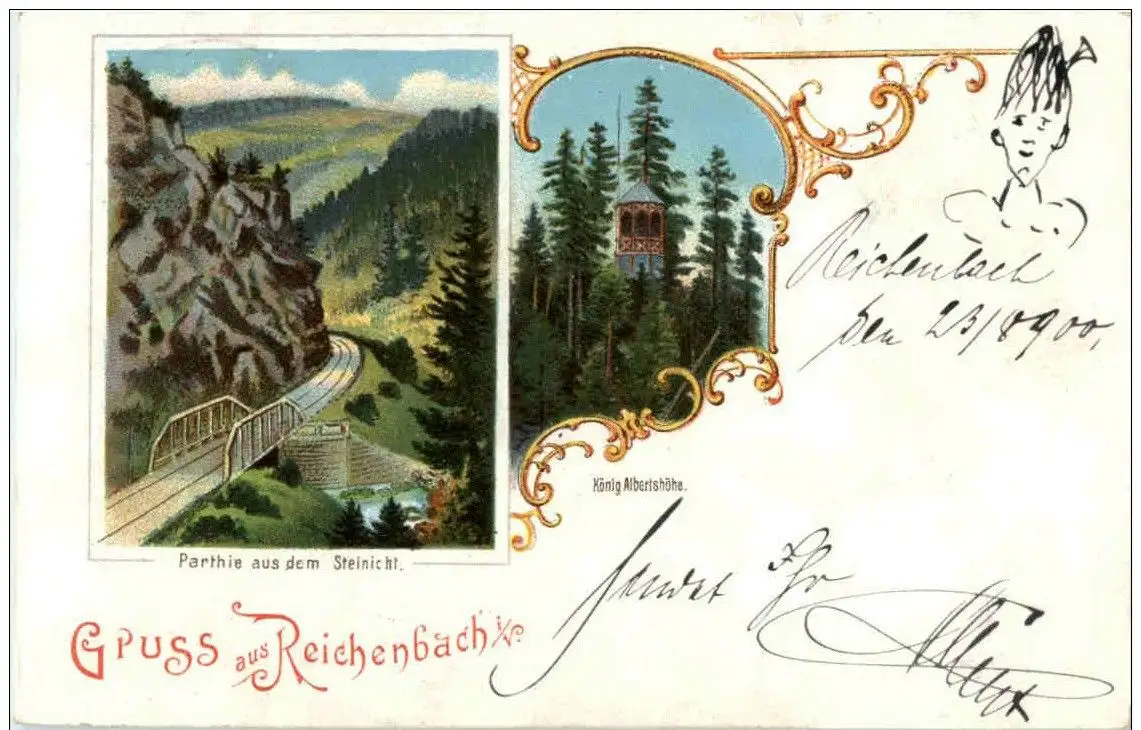 Reichenbach
den 23/8 900,
König Albertshöhe.
Parthie aus dem Steinicht.
sendet Ihr
Gruss aus Reichenbach i/V.